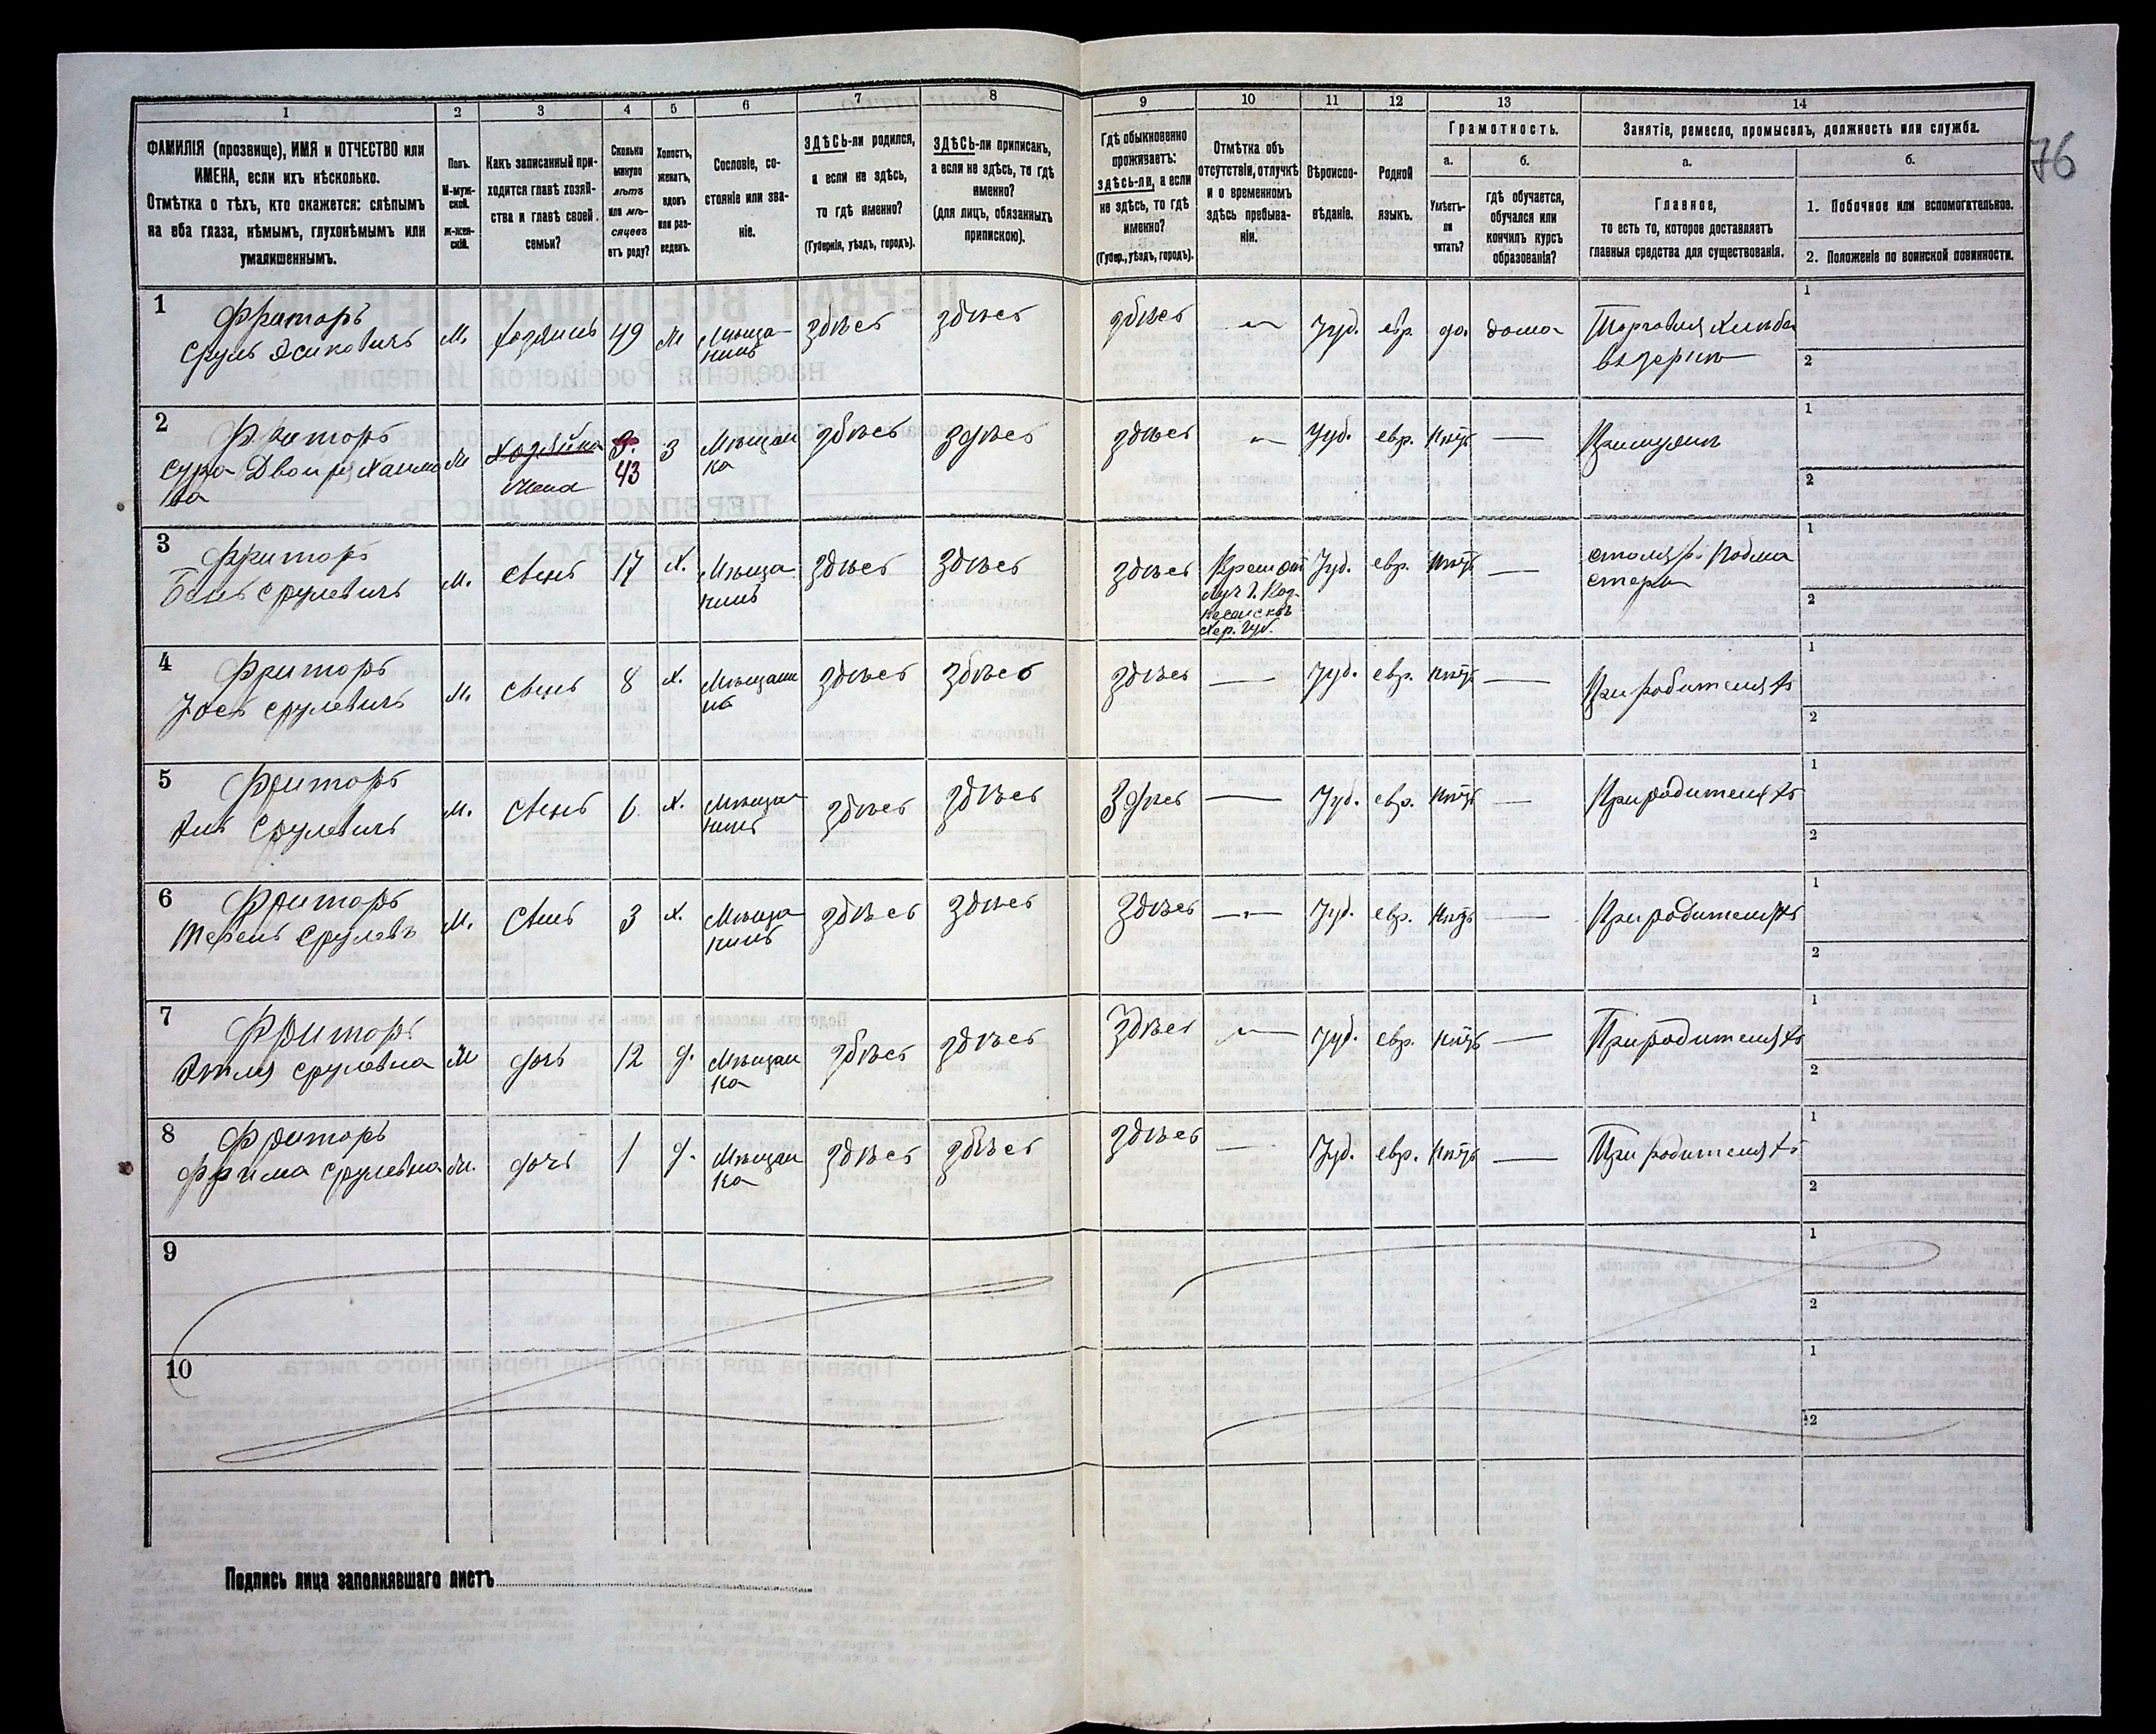 76
1 2 3 4 5 6 7 8 9 10 11 12 13 14
ФАМИЛІЯ (прозвище), ИМЯ и ОТЧЕСТВО или
ИМЕНА, если ихъ нѣсколько.
Отмѣтка о тѣхъ, кто окажется: слѣпымъ
на оба глаза, нѣмымъ, глухонѣмымъ или
умалишеннымъ.
Полъ.
М-муж-
ской.
Ж-жен-
скій.
Какъ записанный при-
ходится главѣ хозяй-
ства и главѣ своей
семьи?
Сколько
минуло
лѣтъ
или мѣ-
сяцевъ
отъ роду?
Холостъ,
женатъ,
вдовъ
или раз-
веденъ.
Сословіе, со-
стояніе или зва-
ніе.
ЗДѢСЬ-ли родился,
а если не здѣсь,
то гдѣ именно?
(Губернія, уѣздъ, городъ).
ЗДѢСЬ-ли приписанъ,
а если не здѣсь, то гдѣ
именно?
(для лицъ, обязанныхъ
припискою).
Гдѣ обыкновенно
проживаетъ:
здѣсь-ли, а если
не здѣсь, то гдѣ
именно?
(Губер., уѣздъ, городъ).
Отмѣтка объ
отсутствіи, отлучкѣ
и о временномъ
здѣсь пребыва-
ніи.
Вѣроиспо-
вѣданіе.
Родной
языкъ.
Грамотность.
а.
Умѣетъ-
ли
читать?
б.
гдѣ обучается,
обучался или
кончилъ курсъ
образованія?
Занятіе, ремесло, промыселъ, должность или служба.
а.
Главное,
то есть то, которое доставляетъ
главныя средства для существованія.
б.
1. Побочное или вспомогательное.
2. Положеніе по воинской повинности.
1 Фриторъ
Сруль М. хозяинъ 49 Мѣща- здѣсь здѣсь здѣсь Іуд. евр. да. дома Торговля
нинъ 1 2
2 Фриторъ
Сура Двойра хозяйка 43 З Мѣщан здѣсь здѣсь здѣсь Іуд. евр. нѣтъ — При мужѣ
жена ка 1 2
3 Фриторъ
Срулевичъ М. сынъ 17 Х. Мѣща здѣсь здѣсь здѣсь Іуд. евр. нѣтъ — столяр. подма
нинъ Хер. Губ. стерье 1 2
4 Фриторъ
Іось Срулевичъ М. сынъ 8 Х. Мѣщани здѣсь здѣсь здѣсь — Іуд. евр. нѣтъ — При родителяхъ
нъ 1 2
5 Фриторъ
Срулевичъ М. сынъ 6 Х. Мѣща здѣсь здѣсь здѣсь — Іуд. евр. нѣтъ — При родителяхъ
нинъ 1 2
6 Фриторъ
М. сынъ 3 Х. Мѣща здѣсь здѣсь здѣсь — Іуд. евр. нѣтъ — При родителяхъ
нинъ 1 2
7 Фриторъ
Этля Срулевна дочь 12 д. Мѣщан здѣсь здѣсь здѣсь — Іуд. евр. нѣтъ — При родителяхъ
ка 1 2
8 Фриторъ
Фрима Срулевна дочь 1 д. Мѣщан здѣсь здѣсь здѣсь — Іуд. евр. нѣтъ — При родителяхъ
ка 1 2
9 1 2
10 1 2
Подпись лица заполнявшаго листъ